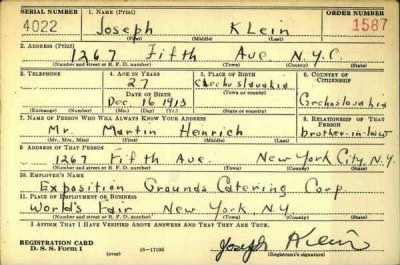 SERIAL NUMBER 1. NAME (Print) ORDER NUMBER
4022 Joseph Klein 1587
(First) (Middle) (Last)
2. ADDRESS (Print)
1267 Fifth Ave N.Y.C.
(Number and street or R. F. D. number) (Town) (County) (State)
3. TELEPHONE 4. AGE IN YEARS 5. PLACE OF BIRTH 6. COUNTRY OF CITIZENSHIP
27 Czechoslovakia
DATE OF BIRTH (Town or county)
Dec. 16 1913 Czechoslovakia
(Exchange) (Number) (Mo.) (Day) (Yr.) (State or country)
7. NAME OF PERSON WHO WILL ALWAYS KNOW YOUR ADDRESS 8. RELATIONSHIP OF THAT PERSON
Mr. Martin Henrich brother-in-law
(Mr., Mrs., Miss) (First) (Middle) (Last)
9. ADDRESS OF THAT PERSON
1267 Fifth Ave. New York City, N.Y.
(Number and street or R. F. D. number) (Town) (County) (State)
10. EMPLOYER'S NAME
Exposition Grounds Catering Corp.
11. PLACE OF EMPLOYMENT OR BUSINESS
World's Fair New York, N.Y
(Number and street or R. F. D. number) (Town) (County) (State)
I AFFIRM THAT I HAVE VERIFIED ABOVE ANSWERS AND THAT THEY ARE TRUE.
REGISTRATION CARD
D. S. S. FORM 1 (over) 16—17105 Joseph Klein
(Registrant's signature)